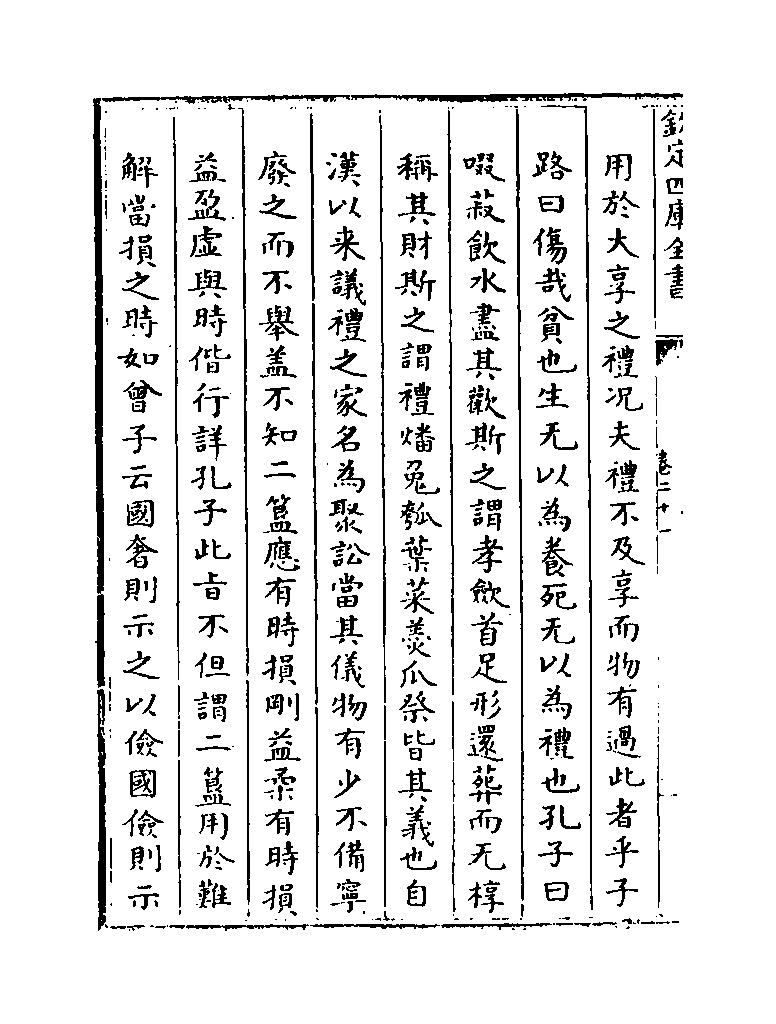 欽定四庫全書
卷二十一
用於大享之禮况夫禮不及享而物有過此者乎子
路曰傷哉貧也生无以為養死无以為禮也孔子曰
啜菽飲水盡其歡斯之謂孝斂首足形還葬而无椁
稱其財斯之謂禮燔兔瓠葉菜羮瓜祭皆其義也自
漢以来議禮之家名為聚訟當其儀物有少不備寧
廢之而不舉盖不知二簋應有時損剛益柔有時損
益盈虚與時偕行詳孔子此㫖不但謂二簋用於難
解當損之時如曾子云國奢則示之以儉國儉則示